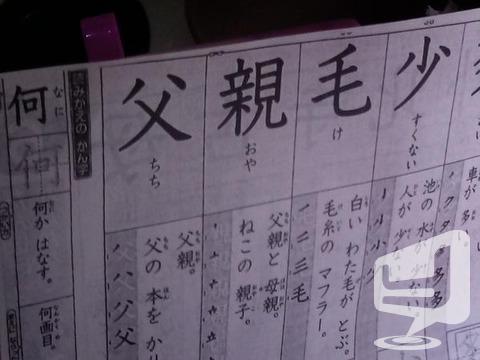 車が多い。
多多
少
すくない
池の水が少ない。
人が少ない。
毛
け
白いわた毛がとぶ。
毛糸のマフラー。
一 二 三 毛
親
おや
父親と母親。
ねこの親子。
父
ちち
父親。
父の本をか
父
読みかえのかん字
何
なに
何かはなす。
何
なん
何画目。